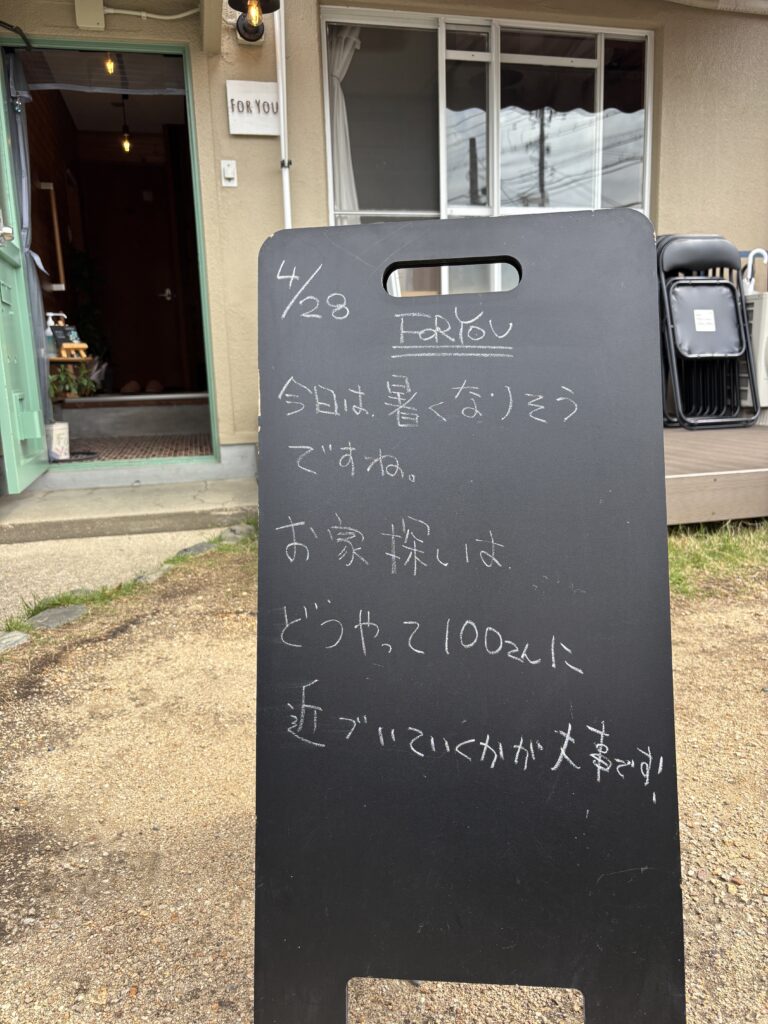 FOR YOU
4/28
FOR YOU
今日は、暑くなりそう
ですね。
お家探しは
どうやって100さんに
近づいていくかが大事です!